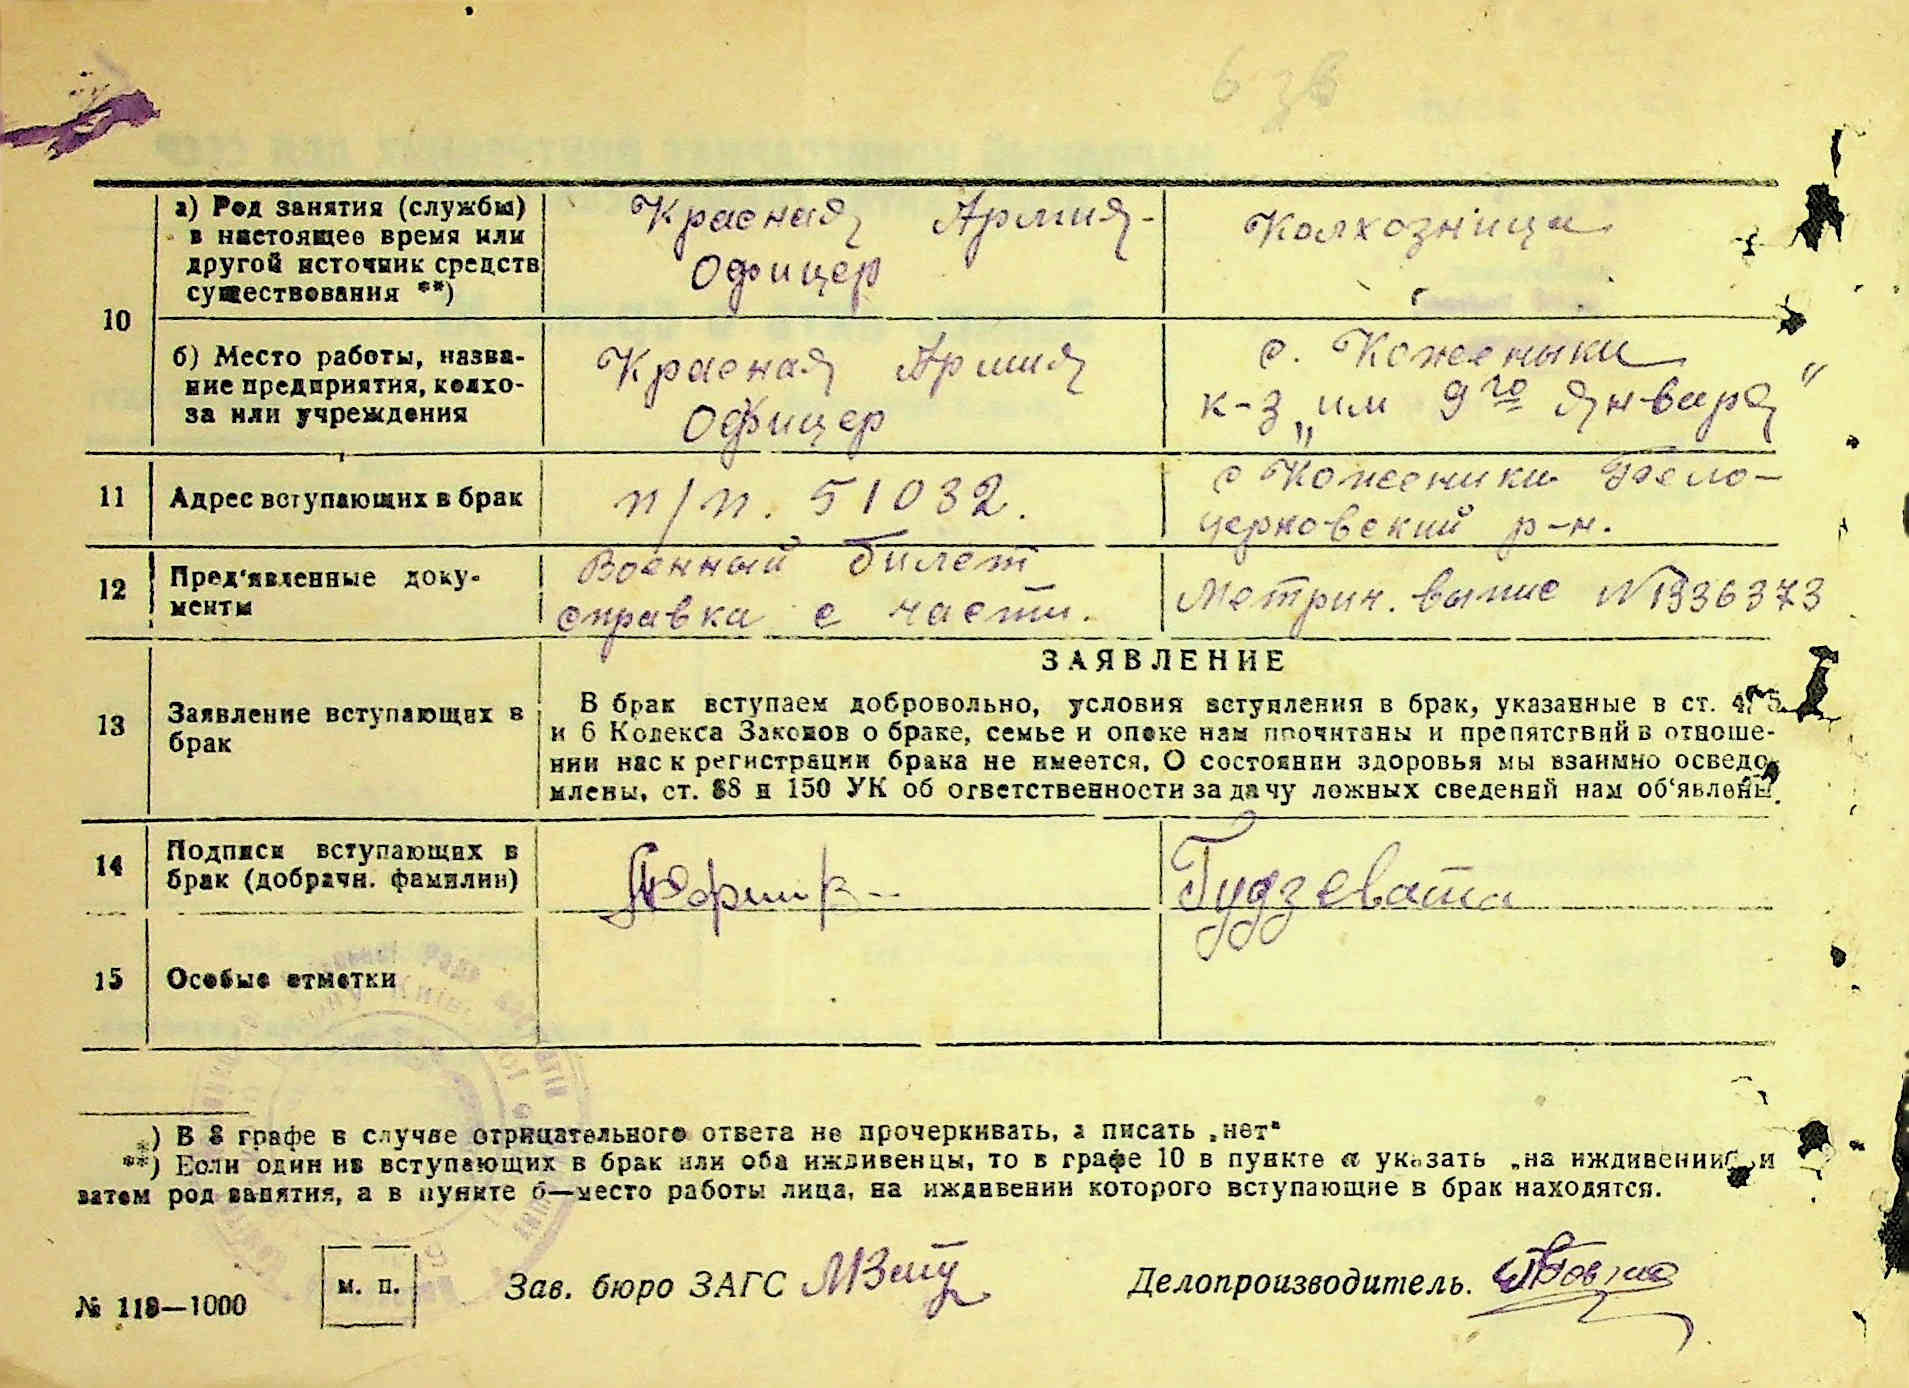 10
а) Род занятия (службы) в настоящее время или другой источник средств существования **)
Красная Армия- Офицер
Колхозница
б) Место работы, название предприятия, колхоза или учреждения
Красная Армия Офицер
с. Коженыки
к-з „им 9го Января"
11
Адрес вступающих в брак
п/п. 51032.
с Коженики Бело-
церковский р-н.
12
Пред'явленные доку-
менты
Военный билет
справка с части.
Метрич. выпис № 1336373
13
Заявление вступающих в
брак
ЗАЯВЛЕНИЕ
В брак вступаем добровольно, условия вступления в брак, указанные в ст. 4, 5
и 6 Кодекса Законов о браке, семье и опеке нам прочитаны и препятствий в отноше-
нии нас к регистрации брака не имеется. О состоянии здоровья мы взаимно осведо-
млены, ст. 88 и 150 УК об ответственности за дачу ложных сведений нам об'явлены.
14
Подписи вступающих в
брак (добрачн. фамилии)
Гудзевата
15
Особые отметки
*) В 8 графе в случае отрицательного ответа не прочеркивать, а писать „нет"
**) Если один из вступающих в брак или оба иждивенцы, то в графе 10 в пункте а указать „на иждивении" и
затем род занятия, а в пункте б—место работы лица, на иждивении которого вступающие в брак находятся.
№ 118—1000
м. п.
Зав. бюро ЗАГС
Делопроизводитель.